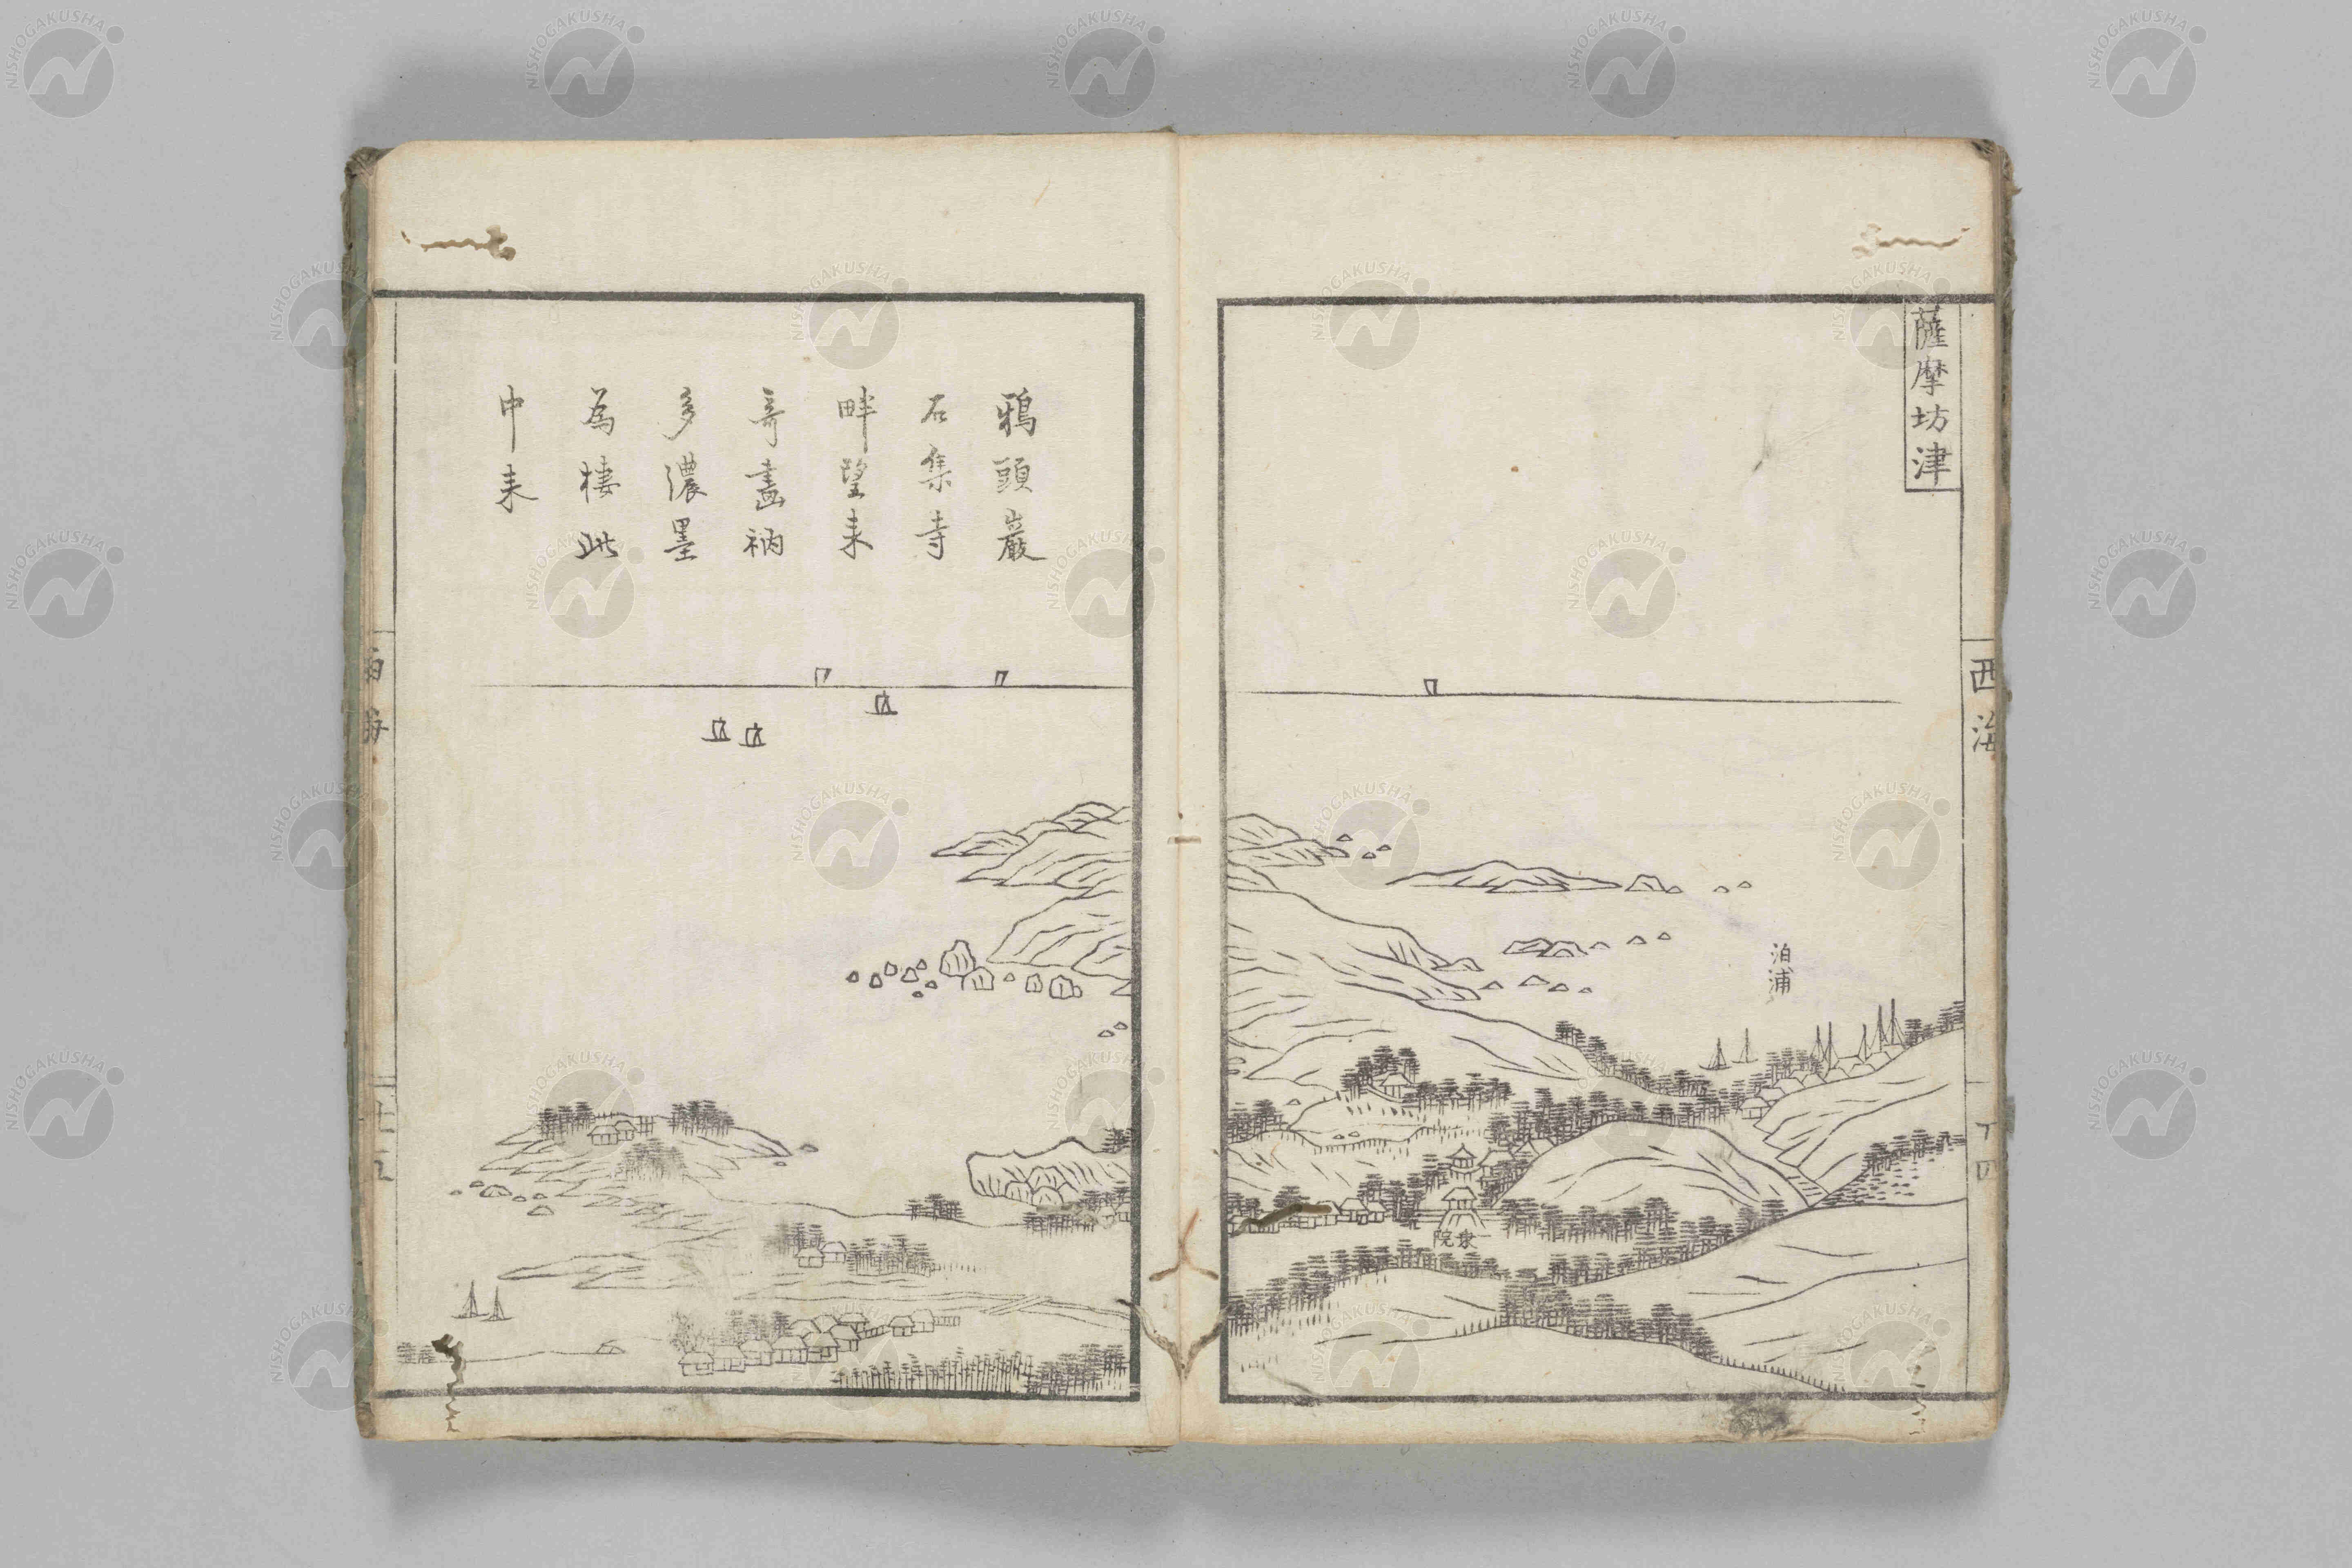 薩摩坊津
西海
泊浦
一乗院
鴉頭巌
石集寺
畔望来
奇畫衲
多濃墨
為棲此
中来
西海
NISHOGAKUSHA